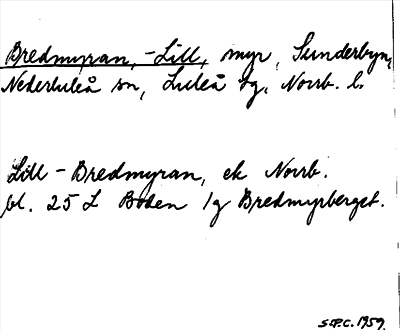 Bredmyran, -Lill, myr, Sunderbyn,
Nederluleå sn, Luleå tg, Norrb. l.
Lill-Bredmyran, ek Norrb.
bl. 25 L Boden /g Bredmyrberget.
S.P.C. 1959.